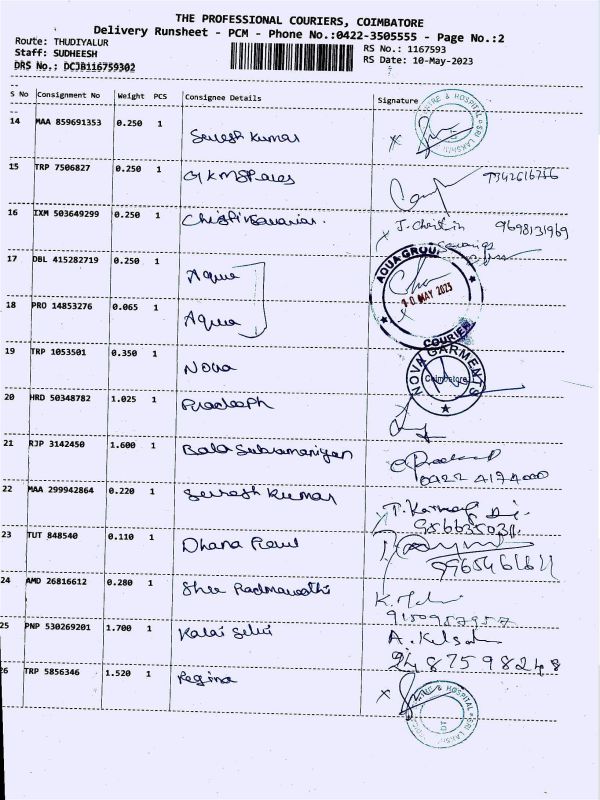 THE PROFESSIONAL COURIERS, COIMBATORE
Delivery Runsheet - PCM - Phone No.:0422-3505555 - Page No.:2
Route: THUDIYALUR
Staff: SUDHEESH
DRS No.: DCJB116759302
RS No.: 1167593
RS Date: 10-May-2023
S No Consignment No Weight PCS Consignee Details Signature
14 MAA 859691353 0.250 1 Suresh Kumar
15 TRP 7506827 0.250 1 GKM Spares
16 IXM 503649299 0.250 1 J. Christin 9698131969
17 DBL 415282719 0.250 1 Aqua
AQUA GROUP
10 MAY 2023
COURIER
18 PRO 14853276 0.065 1 Aqua
19 TRP 1053501 0.350 1 Nova
NOVA GARMENTS
Coimbatore
20 HRD 50348782 1.025 1 Pradeeph
21 RJP 3142450 1.600 1 Bala Subramaniyan
0422 4174000
22 MAA 299942864 0.220 1 Suresh Kumar
23 TUT 848540 0.110 1 Dhana
24 AMD 26816612 0.280 1 Shee Padmavathi
9150957957
25 PNP 530269201 1.700 1 Kalai Selvi
9487598248
26 TRP 5856346 1.520 1 Regina